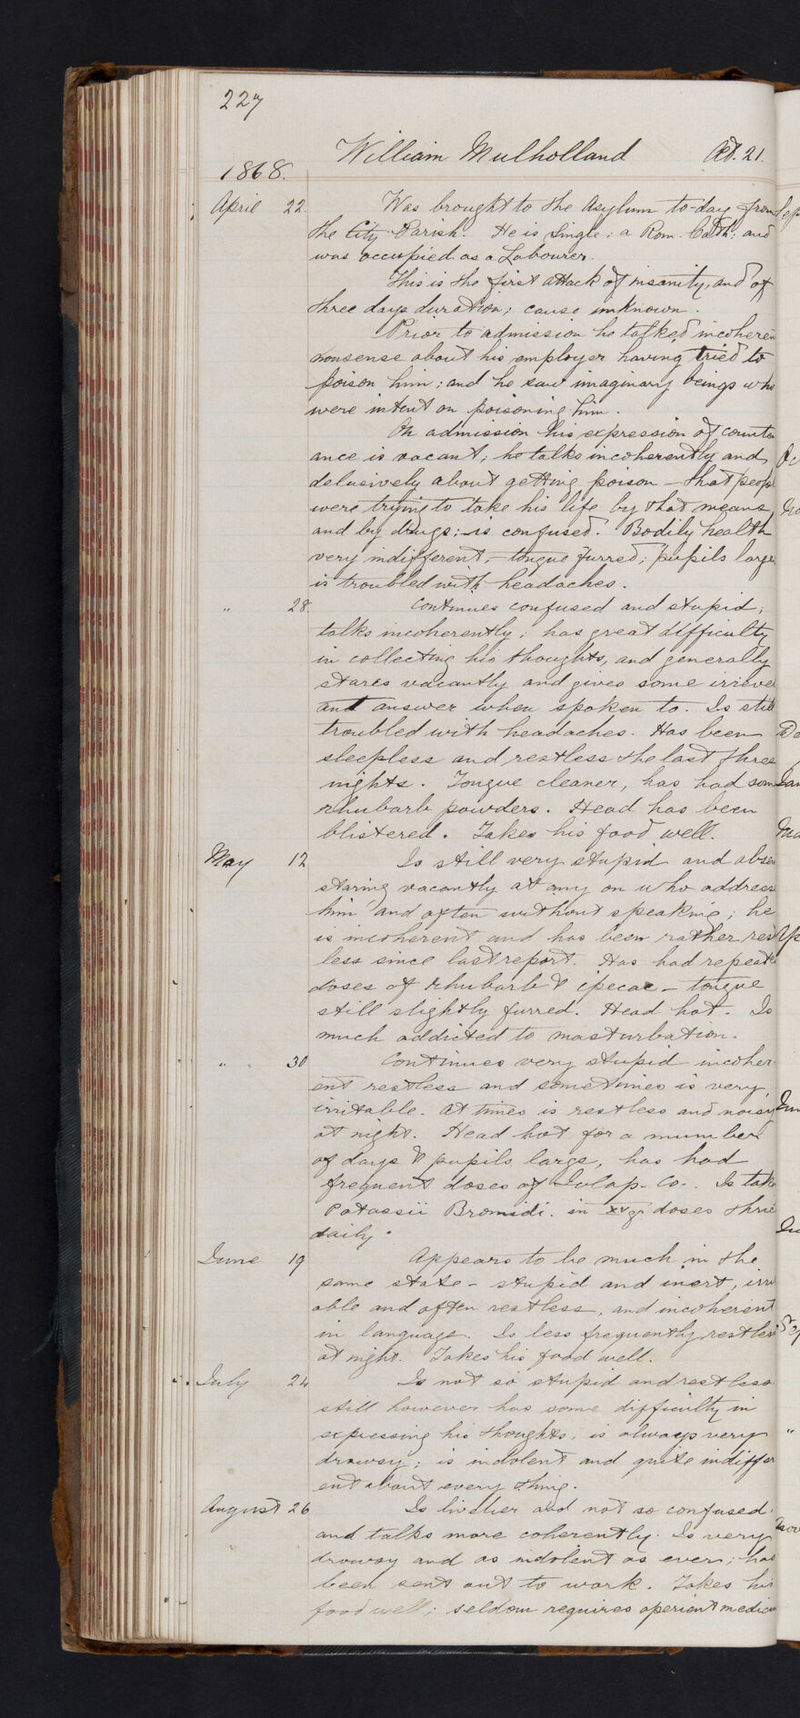 227
William Mulholland Æt. 21.
1868.
April 22. Was brought to the Asylum to-day from
the City Parish. He is Single; a Rom. Cath; and
was occupied as a Labourer.
This is the first attack of insanity, and of
three days duration; cause unknown.
Prior to admission he talked incoheren
nonsense about his employer having tried to
poison him; and he saw imaginary beings who
were intent on poisoning him.
On admission his expression of counten
ance is vacant; he talks incoherently and
delusively about getting poison - that peop
were trying to take his life by that means,
and by drugs; is confused. Bodily health
very indifferent, - tongue furred; pupils large
is troubled with headaches.
" 28. Continues confused and stupid;
talks incoherently; has great difficulty
in collecting his thoughts, and generally
stares vacantly and gives some irrelev
ant answer when spoken to. Is still
troubled with headaches. Has been
sleepless and restless the last three
nights. Tongue cleaner, has had som
rhubarb powders. Head has been
blistered. Takes his food well.
May 12 Is still very stupid and abse
staring vacantly at any on who address
him and often without speaking; he
is incoherent and has been rather rest
less since last report. Has had repeate
doses of rhubarb & ipecac - tongue
still slightly furred. Head hot. Is
much addicted to masturbation.
" 30 Continues very stupid incoher
ent restless and sometimes is very
irritable. At times is restless and noisy
at night. Head hot for a mumber
of days & pupils large, has had
frequent doses of Jalap. Co. Is tak
Potassii Bromidi. in xv gr doses thric
daily.
June 19 Appears to be much in the
same state - stupid and inert, irri
able and often restless, and incoherent
in language. Is less frequently restless
at night. Takes his food well.
July 24 Is not so stupid and restless
still however has some difficulty in
expressing his thoughts, is always very
drowsy; is indolent and quite indiffer
ent about every thing.
August 26 Is livelier and not so confused
and talks more coherently. Is very
drowsy and as indolent as ever; has
been sent out to work. Takes his
food well; seldom requires aperient medicin